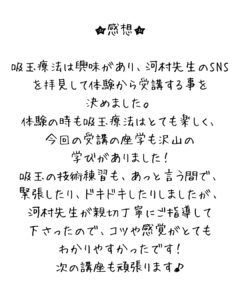 ★感想★
吸玉療法は興味があり、河村先生のSNS
を拝見して体験から受講する事を
決めました。
体験の時も吸玉療法はとても楽しく、
今回の受講の座学も沢山の
学びがありました!
吸玉の技術練習も、あっと言う間で、
緊張したり、ドキドキしたりしましたが、
河村先生が親切丁寧にご指導して
下さったので、コツや感覚がとても
わかりやすかったです!
次の講座も頑張ります♪